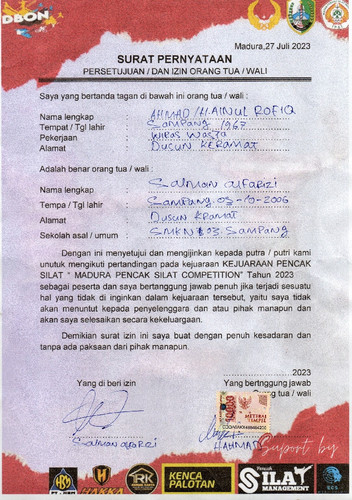 DBON
Madura,27 Juli 2023
SURAT PERNYATAAN
PERSETUJUAN / DAN IZIN ORANG TUA / WALI
Saya yang bertanda tagan di bawah ini orang tua / wali :
Nama lengkap : AHMAD /HAINUL ROFIQ
Tempat / Tgl lahir : Sampang 1965
Pekerjaan : WIRAS WASTA
Alamat : DUSUN KERAMAT
Adalah benar orang tua / wali :
Nama lengkap : Salman alfarizi
Tempa / Tgl lahir : Sampang 03-10-2006
Alamat : Dusun Kramat
Sekolah asal / umum : SMKN 03 Sampang
Dengan ini menyetujui dan mengijinkan kepada putra / putri kami
unutuk mengikuti pertandingan pada kejuaraan KEJUARAAN PENCAK
SILAT " MADURA PENCAK SILAT COMPETITION" Tahun 2023
sebagai peserta dan saya bertanggung jawab penuh jika terjadi sesuatu
hal yang tidak di inginkan dalam kejuaraan tersebut, yaitu saya tidak
akan menuntut kepada penyelenggara dan atau pihak manapun dan
akan saya selesaikan secara kekeluargaan.
Demikian surat izin ini saya buat dengan penuh kesadaran dan
tanpa ada paksaan dari pihak manapun.
2023
Yang di beri izin
Yang bertnggung jawab
Orang tua / wali
10000
METERAI
TEMPEL
Salman alfarizi
AHMAD
Suport by
HAKKA
RK
KENCA
PALOTAN
Pencak
SILAT
MANAGEMENT